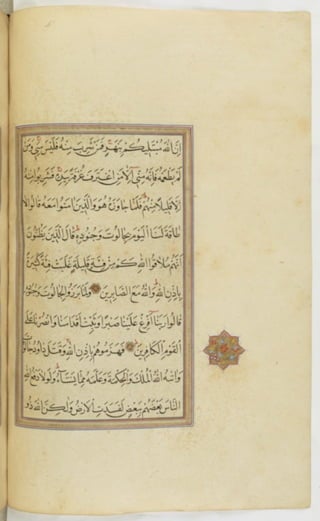 ان الله مبتليكم بنهر فمن شرب منه فليس مني ومن
لم يطعمه فانه مني الا من اغترف غرفة بيده فشربوا منه
الا قليلا منهم فلما جاوزه هو والذين امنوا معه قالوا لا
طاقة لنا اليوم بجالوت وجنوده قال الذين يظنون
انهم ملاقوا الله كم من فئة قليلة غلبت فئة كثيرة
باذن الله والله مع الصابرين ولما برزوا لجالوت وجنوده
قالوا ربنا افرغ علينا صبرا وثبت اقدامنا وانصرنا على
القوم الكافرين فهزموهم باذن الله وقتل داود جالوت
واتيه الله الملك والحكمة وعلمه مما يشاء ولولا دفع الله
الناس بعضهم ببعض لفسدت الارض ولكن الله ذو